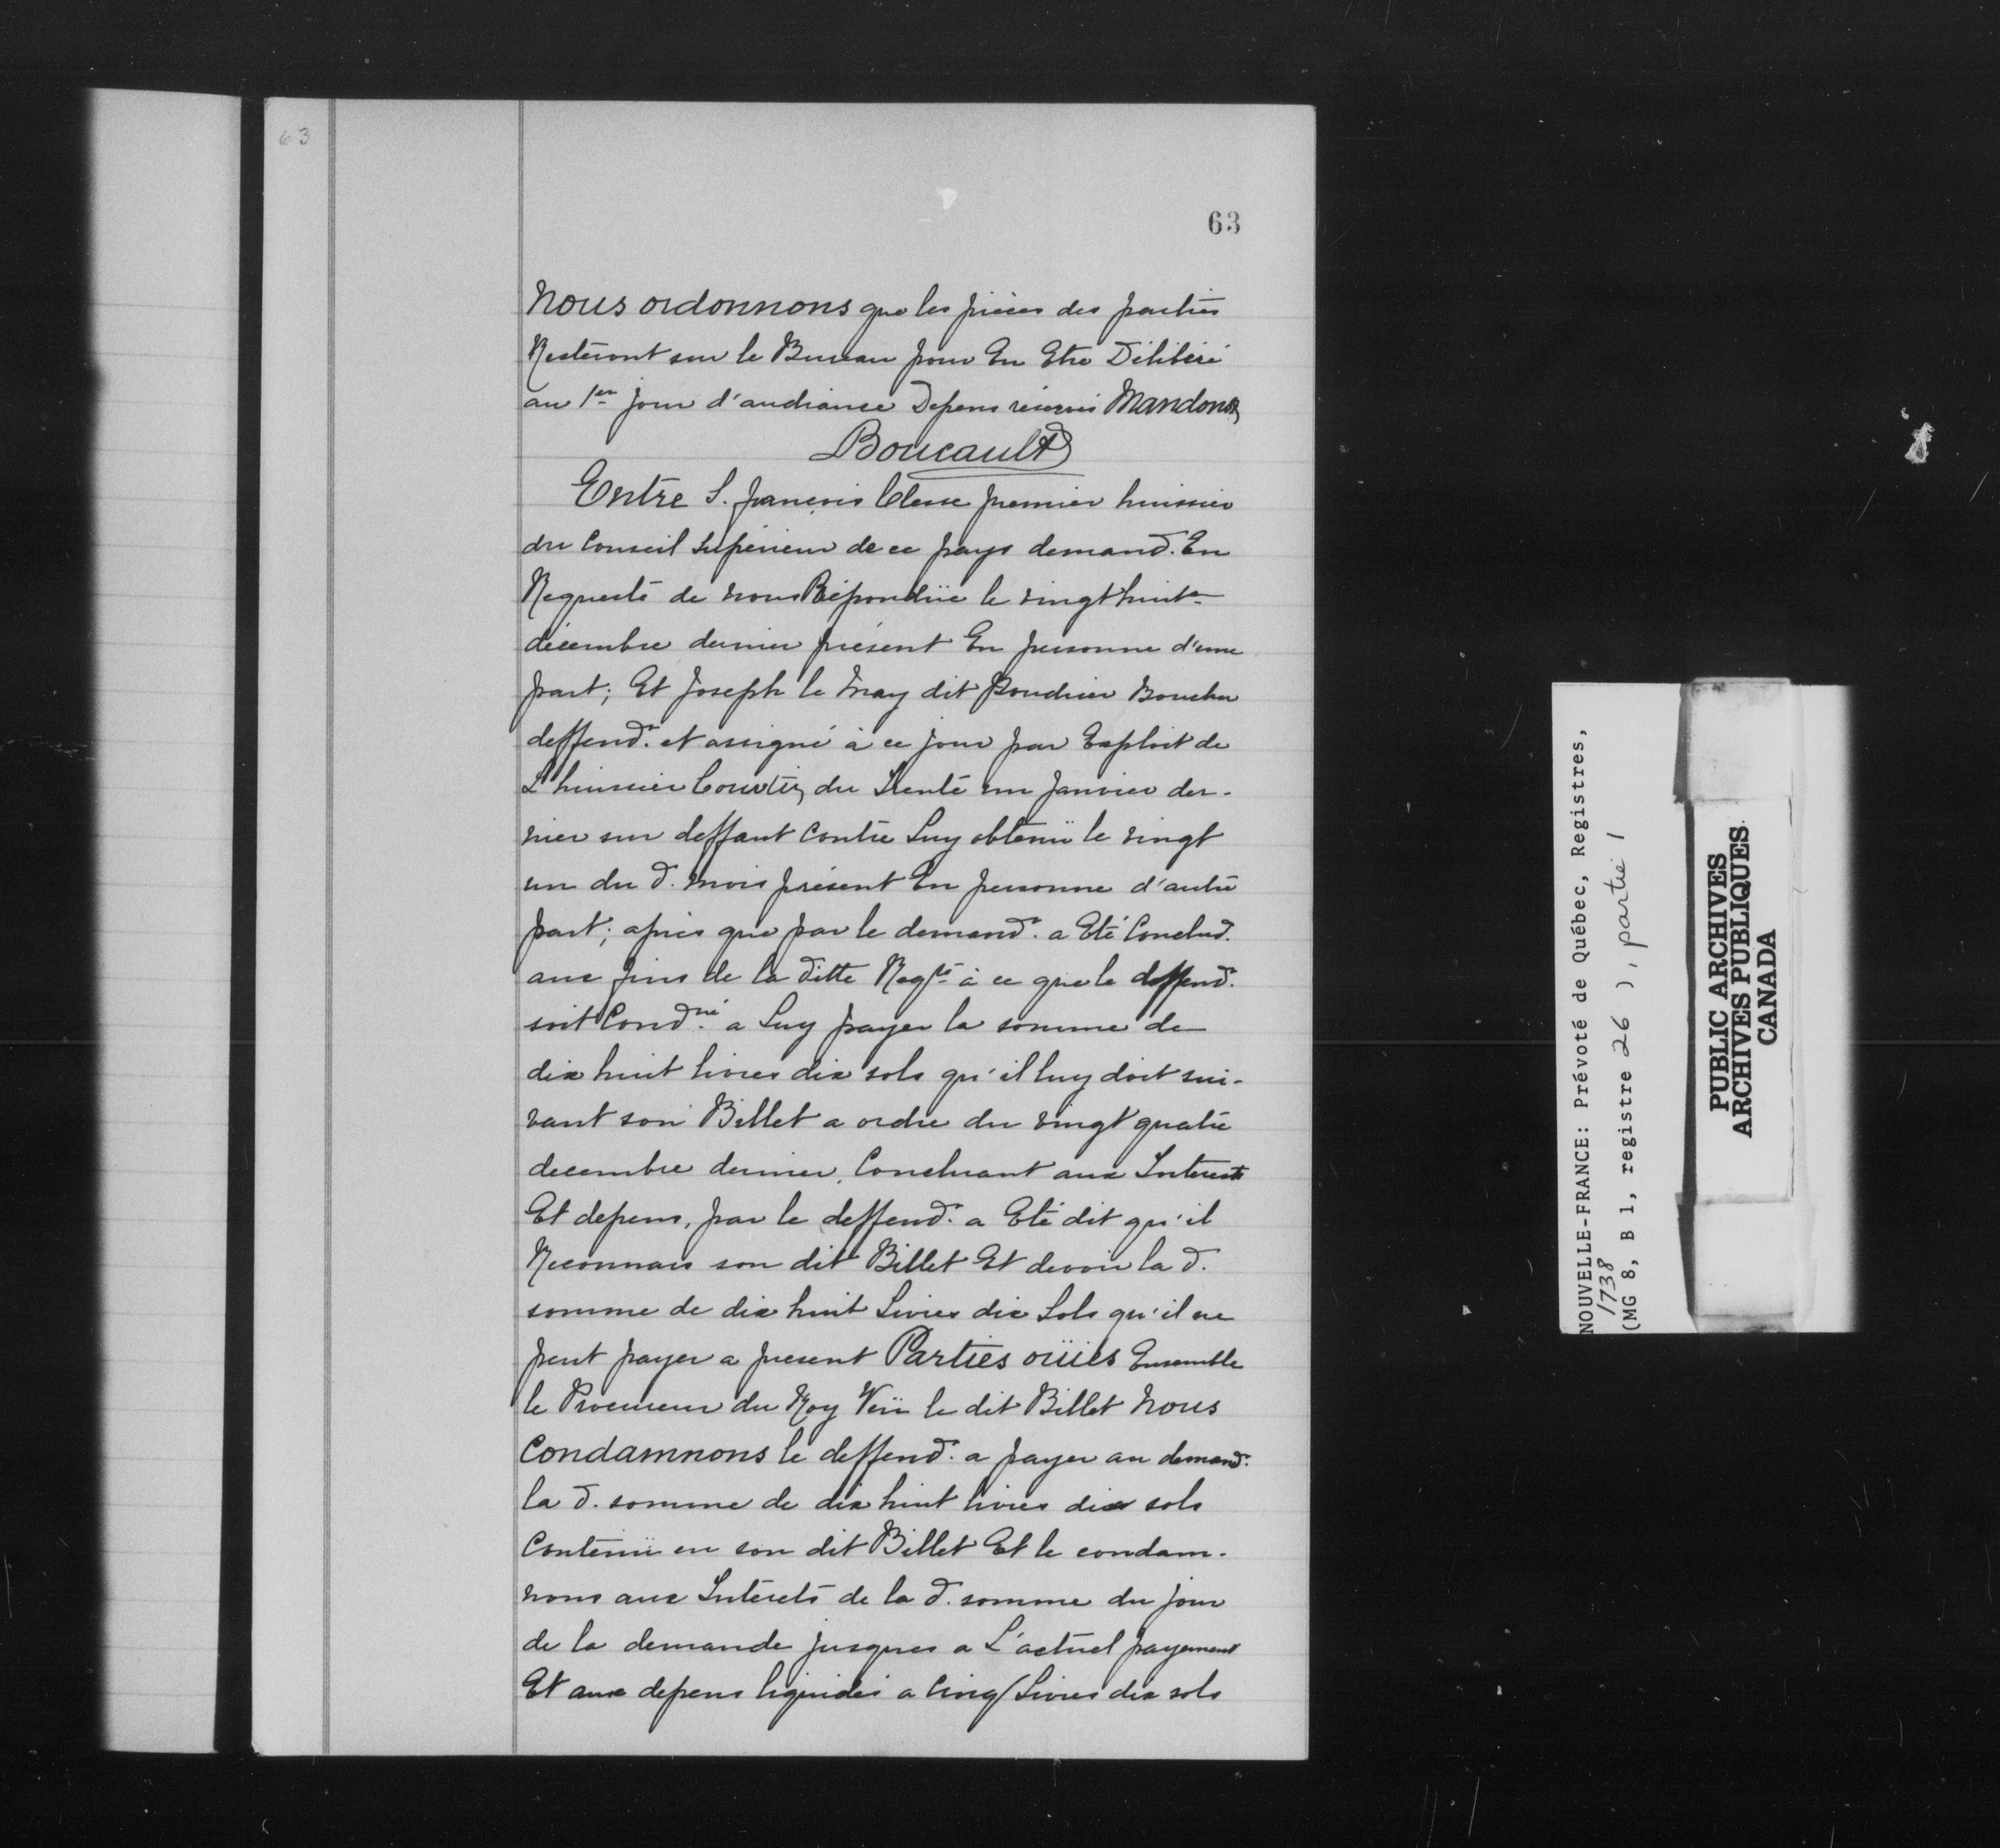 63
63
Nous ordonnons que les pièces des parties
Resteront sur le Bureau pour En Etre Délibéré
au 1er jour d'audiance Depens réservés Mandons
Boucault
Entre S. françois Clesse premier huissier
du Conseil Supérieur de ce pays demandr. En
Requeste de nous Répondüe le vingt huit
décembre dernier présent En personne d'une
part; Et Joseph le May dit Poudrier Boucher
deffendr. et assigné à ce jour par Exploit de
L'huissier Courtin du Trente un Janvier der-
nier sur deffaut contre Luy obtenü le vingt
un du d. mois présent En personne d'autre
part; après que par le demandr. a Eté Conclud.
aux fins de la ditte Reqte à ce que le deffendr.
soit Condné. a Luy payer la somme de
dix huit livres dix sols qu'il luy doit sui-
vant son Billet a ordre du vingt quatre
decembre dernier, Concluant aux Interests
Et depens, par le deffendr. a Eté dit qu'il
Reconnais son dit Billet Et devoir la d.
somme de dix huit Livres dix Sols qu'il ne
peut payer a present Parties oüies Ensemble
le Procureur du Roy Veü le dit Billet Nous
Condamnons le deffendr. a payer au demandr.
la d. somme de dix huit livres dix sols
Contenü en son dit Billet Et le condam-
nons aux Intérets de la d. somme du jour
de la demande jusques a L'actuel payement
Et aux depens liquidés a Cinq Livres dix sols
NOUVELLE-FRANCE: Prévoté de Québec, Registres,
1738
(MG 8, B 1, registre 26 ), partie 1
PUBLIC ARCHIVES
ARCHIVES PUBLIQUES
CANADA